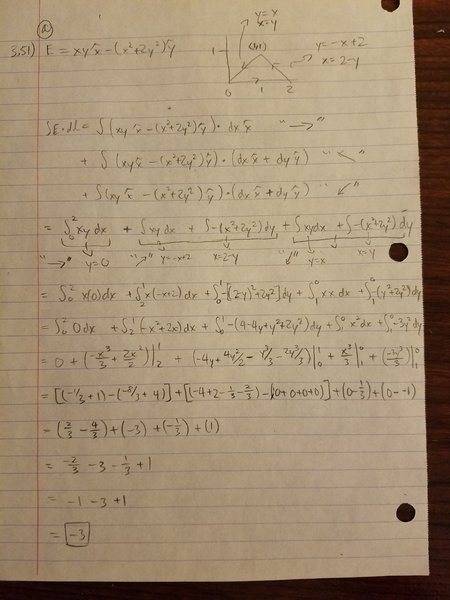 (a)
3.51) E = xy x̂ - (x²+2y²) ŷ
y=x
x=y
1
(1,1)
y=-x+2
x=2-y
0 1 2
∫E·dl = ∫(xy x̂ - (x²+2y²)ŷ) · dx x̂ "→"
+ ∫(xy x̂ - (x²+2y²)ŷ) · (dx x̂ + dy ŷ) "↖"
+ ∫(xy x̂ - (x²+2y²)ŷ) · (dx x̂ + dy ŷ) "↙"
= ∫₀² xy dx + ∫xy dx + ∫-(x²+2y²)dy + ∫xy dx + ∫-(x²+2y²)dy
"→" y=0 "↗" y=-x+2 x=2-y "↙" y=x x=y
= ∫₀² x(0)dx + ∫₂¹ x(-x+2)dx + ∫₀¹ -[(2-y)²+2y²]dy + ∫₁⁰ xx dx + ∫₁⁰ -(y²+2y²)dy
= ∫₀² 0dx + ∫₂¹ (-x²+2x)dx + ∫₀¹ -(4-4y+y²+2y²)dy + ∫₁⁰ x²dx + ∫₁⁰ -3y²dy
= 0 + (-x³/3 + 2x²/2)|₂¹ + (-4y + 4y²/2 - y³/3 - 2y³/3)|₀¹ + x³/3|₁⁰ + (-3y³/3)|₁⁰
= [(-1/3+1)-(-8/3+4)] + [(-4+2-1/3-2/3)-(0+0+0+0)] + (0-1/3) + (0--1)
= (2/3 - 4/3) + (-3) + (-1/3) + (1)
= -2/3 - 3 - 1/3 + 1
= -1 - 3 + 1
= -3